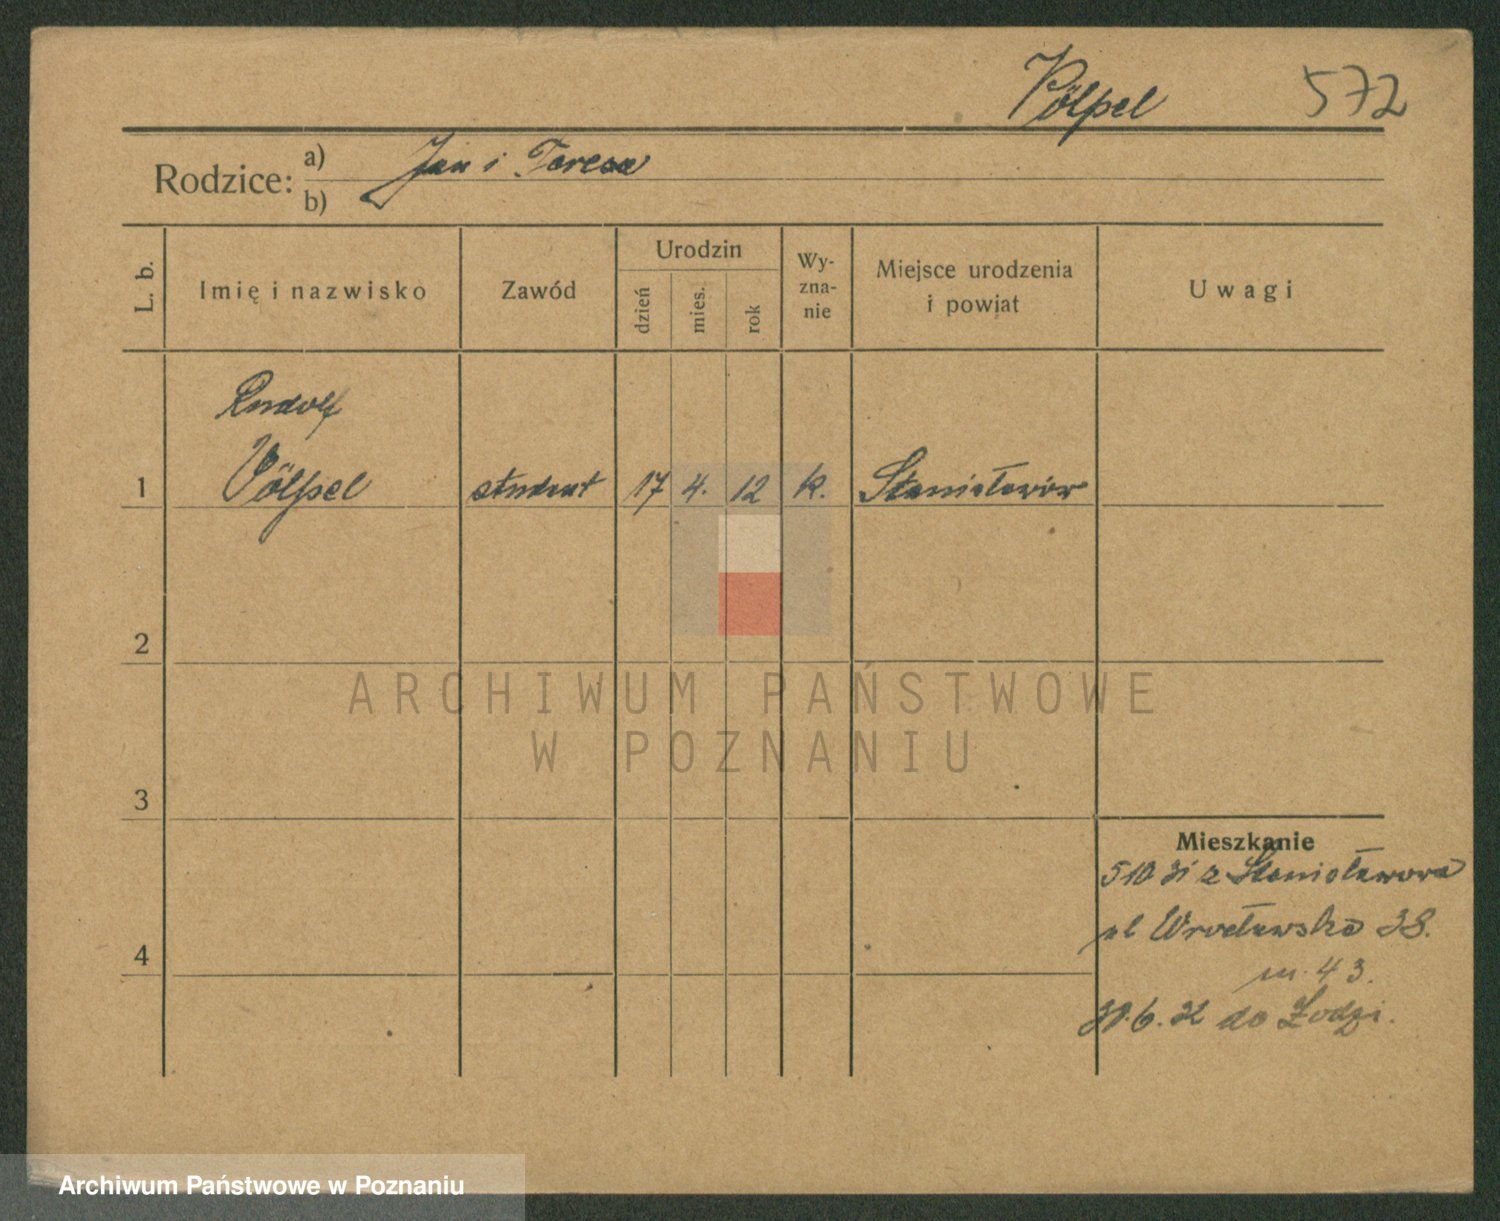 Völpel 572
Rodzice: a) Jan i Teresa
b)
L. b. Imię i nazwisko Zawód Urodzin dzień mies. rok Wy-zna-nie Miejsce urodzenia i powiat Uwagi
Rudolf
1 Völpel student 17 4. 12 k. Stanisławów
2
ARCHIWUM PAŃSTWOWE
W POZNANIU
3
Mieszkanie
5 10 31 z Stanisławowa
ul Wrocławska 38.
4
m. 43.
30.6.32 do Łodzi.
Archiwum Państwowe w Poznaniu